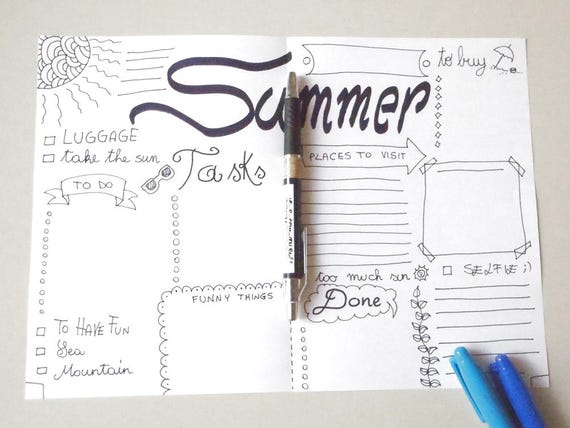 Summer
to buy
LUGGAGE
take the sun
TO DO
Tasks
PLACES TO VISIT
too much sun
SELFIE ;)
FUNNY THINGS
Done
TO HAVE FUN
Sea
Mountain